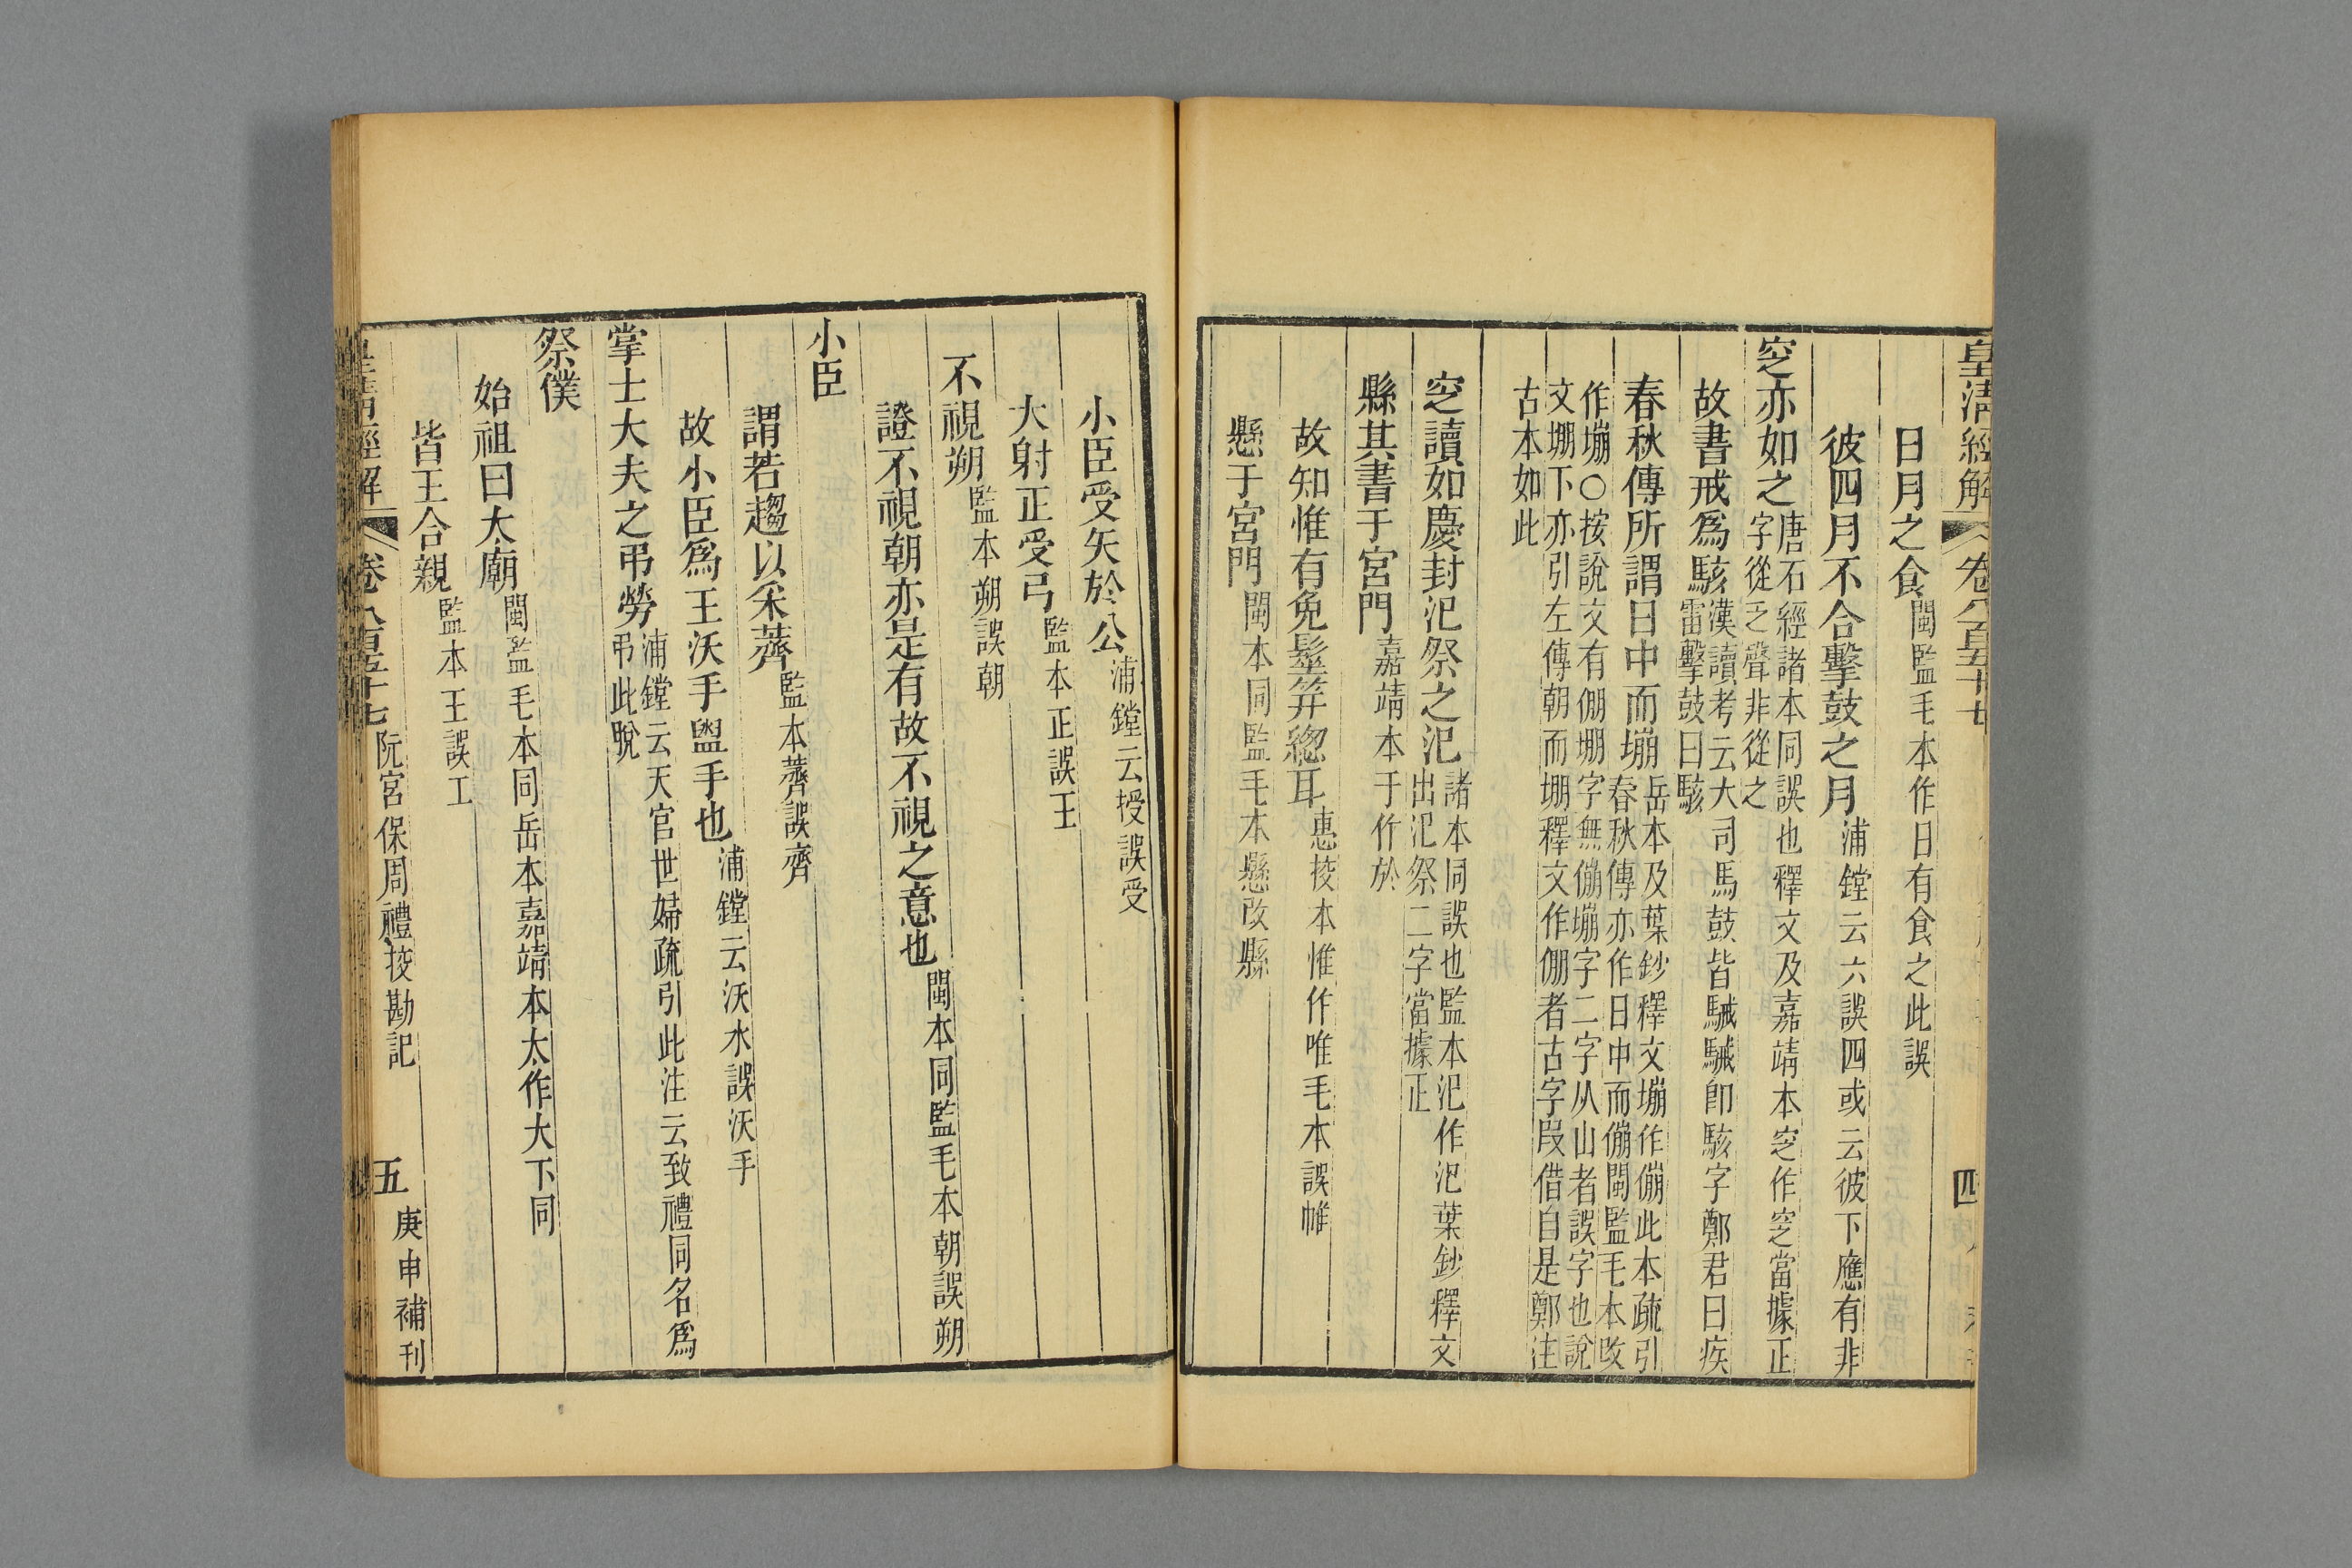 皇淸經解 卷八百五十七 四
日月之食閩監毛本作日有食之此誤
彼四月不合擊鼓之月浦鏜云六誤四或云彼下應有非
窆亦如之唐石經諸本同誤也釋文及嘉靖本窆作窆當據正
字從乏聲非從之
故書戒爲駭漢讀考云大司馬鼓皆駴駴卽駭字鄭君曰疾
雷擊鼓曰駭
春秋傳所謂日中而塴岳本及葉鈔釋文塴作傰此本疏引
春秋傳亦作日中而傰閩監毛本改
作塴〇按說文有倗堋字無傰塴字二字从山者誤字也說
文堋下亦引左傳朝而堋釋文作倗者古字叚借自是鄭注
古本如此
窆讀如慶封汜祭之汜諸本同誤也監本汜作氾葉鈔釋文
出氾祭二字當據正
縣其書于宮門嘉靖本于作於
故知惟有免髽筓緫耳惠挍本惟作唯毛本誤帷
懸于宮門閩本同監毛本懸改縣
小臣受矢於公浦鏜云授誤受
大射正受弓監本正誤王
不視朔監本朔誤朝
證不視朝亦是有故不視之意也閩本同監毛本朝誤朔
小臣
謂若趨以采薺監本薺誤齊
故小臣爲王沃手盥手也浦鏜云沃水誤沃手
掌士大夫之弔勞浦鏜云天官世婦疏引此注云致禮同名爲
弔此脫
祭僕
始祖曰太廟閩監毛本同岳本嘉靖本太作大下同
皆王合親監本王誤工
皇清經解 卷八百五十七 阮宮保周禮挍勘記 五 庚申補刊